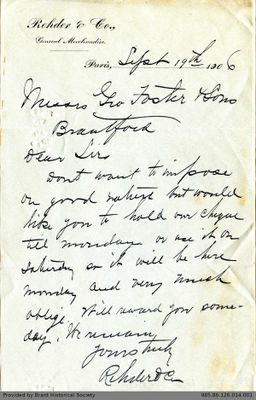 Rehder & Co.,
General Merchandise.
Paris, Sept 19th 1906
Messrs Geo Foster & Sons
Brantford
Dear Sirs
Dont want to impose
on good nature but would
like you to hold our cheque
till monday or use it on
Saturday so it will be here
monday and very much
oblige. Will reward you some-
day. We remain
Yours truly
Rehder & Co
Provided by Brant Historical Society
985.86.126.014.001